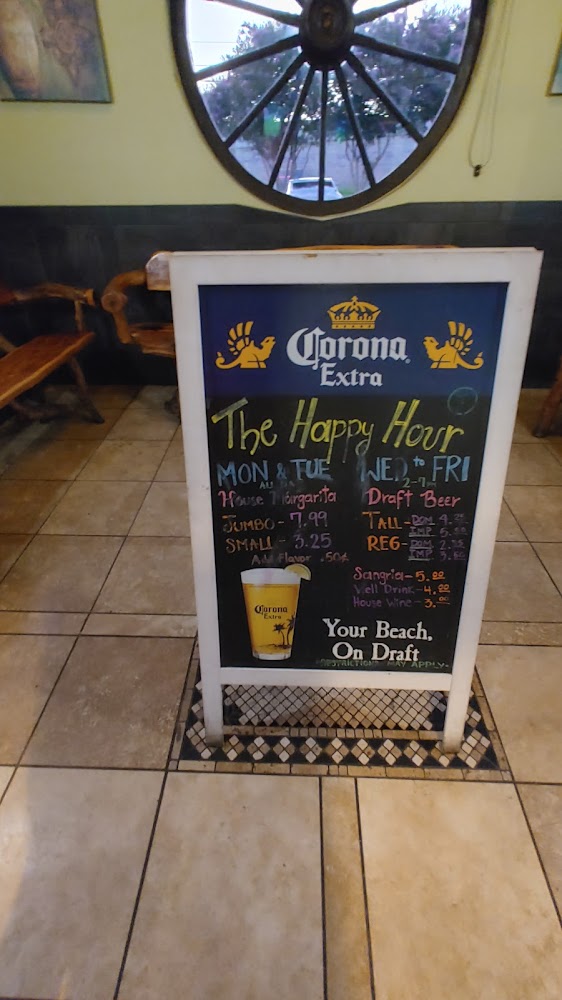 Corona
Extra
The Happy Hour
MON & TUE
ALL DAY
House Margarita
JUMBO - 7.99
SMALL - 3.25
Add Flavor .50¢
WED to FRI
2-7pm
Draft Beer
TALL - DOM 4.
IMP 5.
REG - DOM 2.
IMP 3.
Sangria - 5.00
Well Drink - 4.00
House Wine - 3.00
Corona
Extra
Your Beach,
On Draft
RESTRICTIONS MAY APPLY